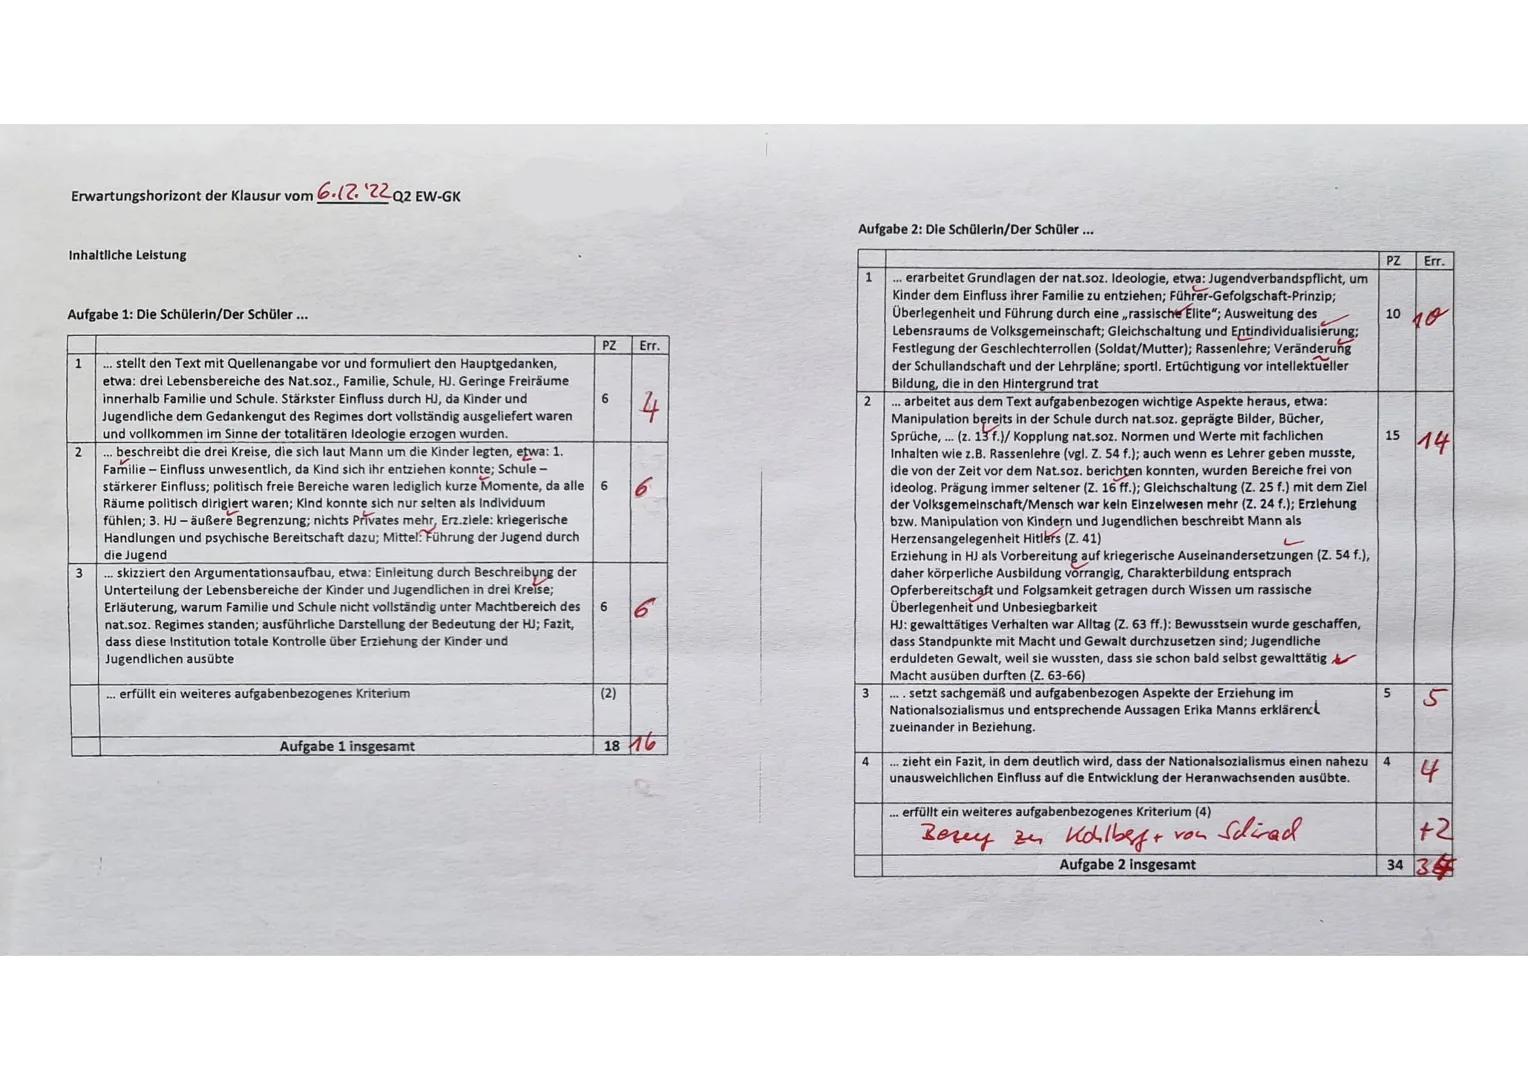 Erwartungshorizont der Klausur vom 6.12.'22 Q2 EW-GK
Inhaltliche Leistung
Aufgabe 1: Die Schülerin/Der Schüler ...
PZ Err.
1 ... stellt den Text mit Quellenangabe vor und formuliert den Hauptgedanken,
etwa: drei Lebensbereiche des Nat.soz., Familie, Schule, HJ. Geringe Freiräume
innerhalb Familie und Schule. Stärkster Einfluss durch HJ, da Kinder und 6 4
Jugendliche dem Gedankengut des Regimes dort vollständig ausgeliefert waren
und vollkommen im Sinne der totalitären Ideologie erzogen wurden.
2 ... beschreibt die drei Kreise, die sich laut Mann um die Kinder legten, etwa: 1.
Familie – Einfluss unwesentlich, da Kind sich ihr entziehen konnte; Schule –
stärkerer Einfluss; politisch freie Bereiche waren lediglich kurze Momente, da alle 6 6
Räume politisch dirigiert waren; Kind konnte sich nur selten als Individuum
fühlen; 3. HJ – äußere Begrenzung; nichts Privates mehr, Erz.ziele: kriegerische
Handlungen und psychische Bereitschaft dazu; Mittel: Führung der Jugend durch
die Jugend
3 ... skizziert den Argumentationsaufbau, etwa: Einleitung durch Beschreibung der
Unterteilung der Lebensbereiche der Kinder und Jugendlichen in drei Kreise;
Erläuterung, warum Familie und Schule nicht vollständig unter Machtbereich des 6 6
nat.soz. Regimes standen; ausführliche Darstellung der Bedeutung der HJ; Fazit,
dass diese Institution totale Kontrolle über Erziehung der Kinder und
Jugendlichen ausübte
... erfüllt ein weiteres aufgabenbezogenes Kriterium (2)
Aufgabe 1 insgesamt 18 16
Aufgabe 2: Die Schülerin/Der Schüler ...
PZ Err.
1 ... erarbeitet Grundlagen der nat.soz. Ideologie, etwa: Jugendverbandspflicht, um
Kinder dem Einfluss ihrer Familie zu entziehen; Führer-Gefolgschaft-Prinzip;
Überlegenheit und Führung durch eine „rassische Elite“; Ausweitung des 10 10
Lebensraums de Volksgemeinschaft; Gleichschaltung und Entindividualisierung;
Festlegung der Geschlechterrollen (Soldat/Mutter); Rassenlehre; Veränderung
der Schullandschaft und der Lehrpläne; sportl. Ertüchtigung vor intellektueller
Bildung, die in den Hintergrund trat
2 ... arbeitet aus dem Text aufgabenbezogen wichtige Aspekte heraus, etwa:
Manipulation bereits in der Schule durch nat.soz. geprägte Bilder, Bücher,
Sprüche, ... (z. 13 f.)/ Kopplung nat.soz. Normen und Werte mit fachlichen 15 14
Inhalten wie z.B. Rassenlehre (vgl. Z. 54 f.); auch wenn es Lehrer geben musste,
die von der Zeit vor dem Nat.soz. berichten konnten, wurden Bereiche frei von
ideolog. Prägung immer seltener (Z. 16 ff.); Gleichschaltung (Z. 25 f.) mit dem Ziel
der Volksgemeinschaft/Mensch war kein Einzelwesen mehr (Z. 24 f.); Erziehung
bzw. Manipulation von Kindern und Jugendlichen beschreibt Mann als
Herzensangelegenheit Hitlers (Z. 41)
Erziehung in HJ als Vorbereitung auf kriegerische Auseinandersetzungen (Z. 54 f.),
daher körperliche Ausbildung vorrangig, Charakterbildung entsprach
Opferbereitschaft und Folgsamkeit getragen durch Wissen um rassische
Überlegenheit und Unbesiegbarkeit
HJ: gewalttätiges Verhalten war Alltag (Z. 63 ff.): Bewusstsein wurde geschaffen,
dass Standpunkte mit Macht und Gewalt durchzusetzen sind; Jugendliche
erduldeten Gewalt, weil sie wussten, dass sie schon bald selbst gewalttätig
Macht ausüben durften (Z. 63-66)
3 ... . setzt sachgemäß und aufgabenbezogen Aspekte der Erziehung im 5 5
Nationalsozialismus und entsprechende Aussagen Erika Manns erklärend
zueinander in Beziehung.
4 ... zieht ein Fazit, in dem deutlich wird, dass der Nationalsozialismus einen nahezu 4 4
unausweichlichen Einfluss auf die Entwicklung der Heranwachsenden ausübte.
... erfüllt ein weiteres aufgabenbezogenes Kriterium (4)
Bezug zu Kohlberg + von Schirach +2
Aufgabe 2 insgesamt 34 34